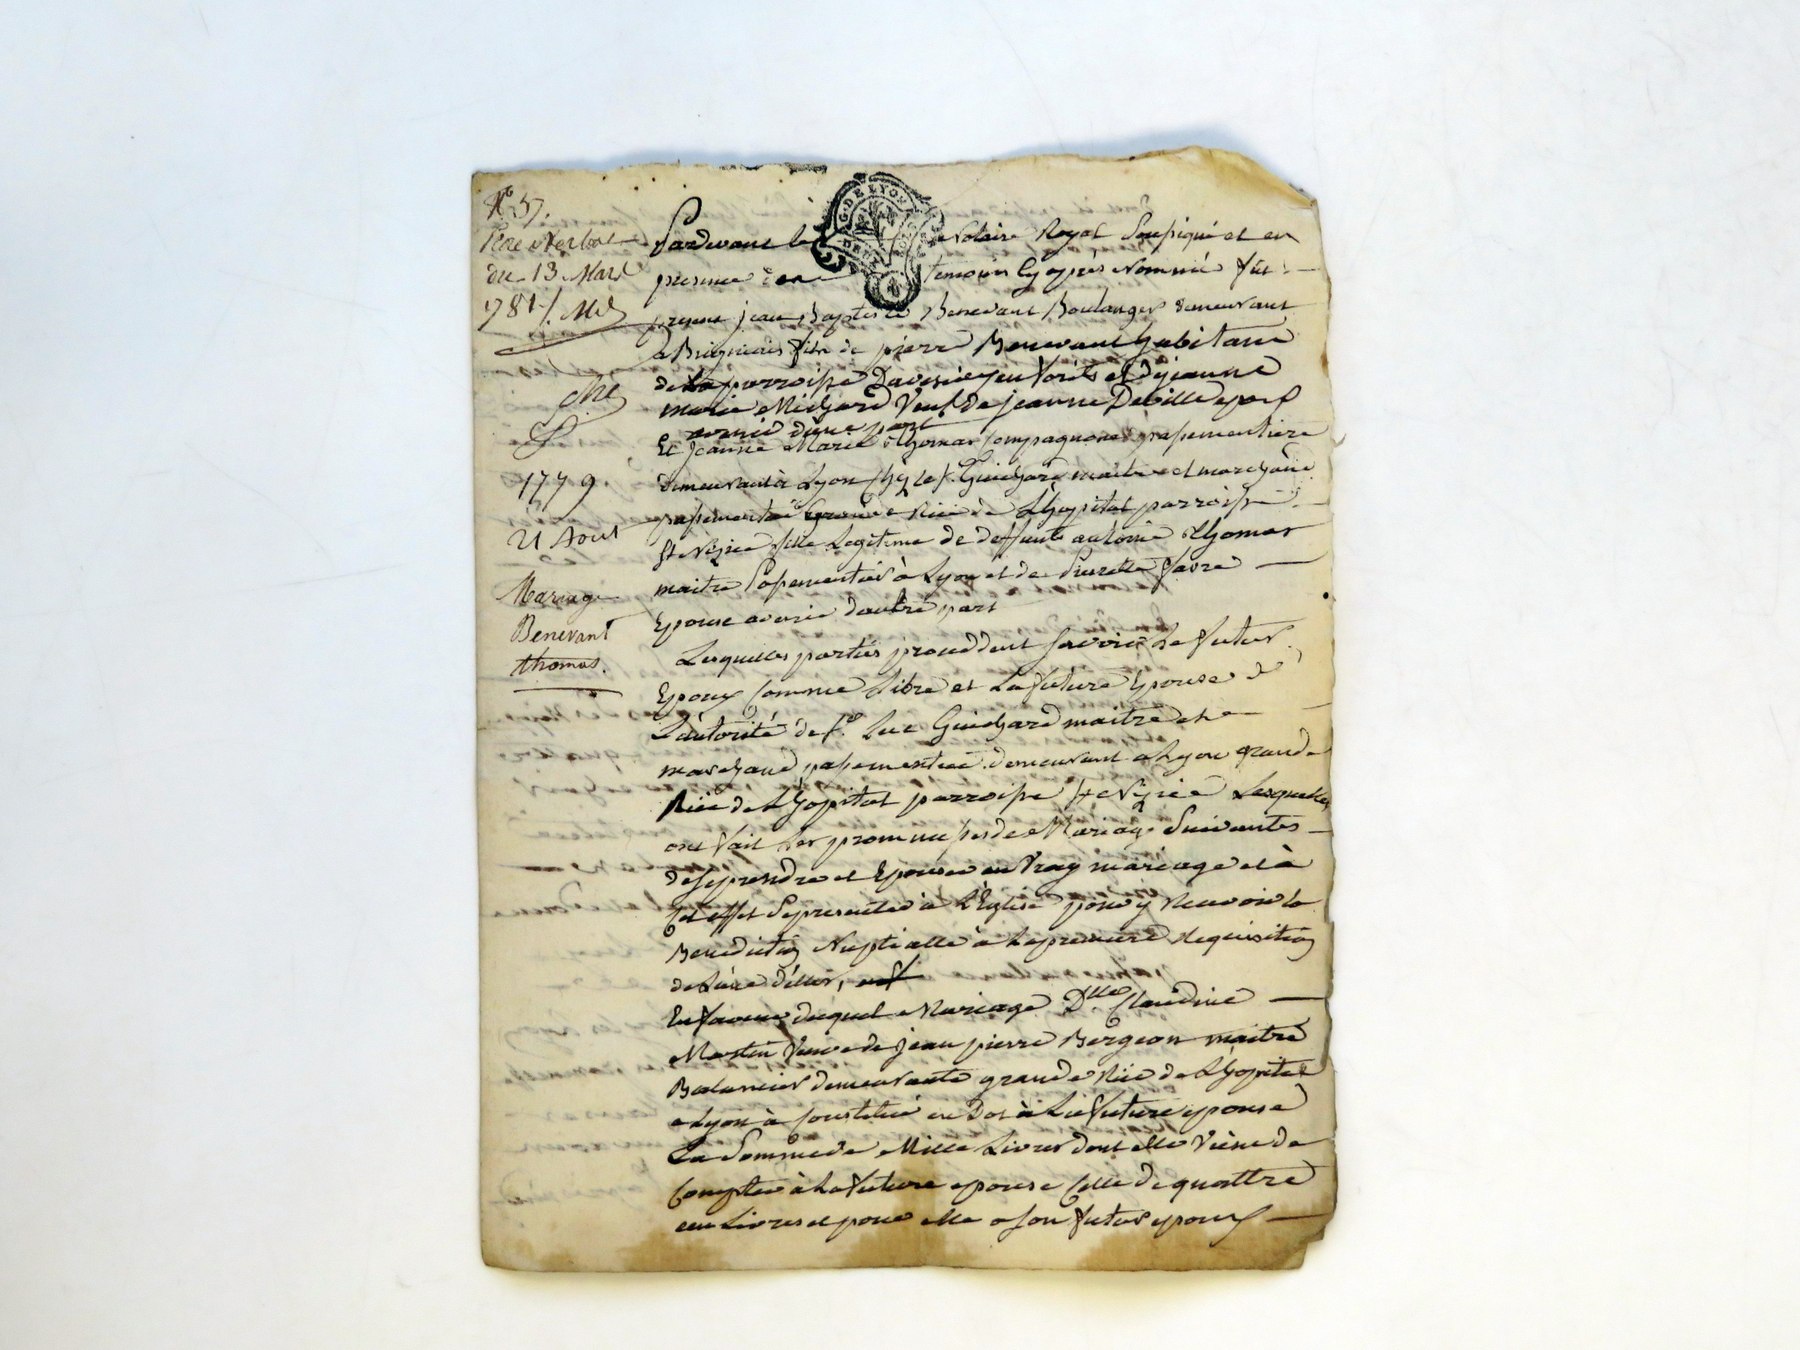 N° 57.
du 13 Mars
1781
1779
21 Aout
Mariage
Benevant
thomas.
G. DE LYON
Pardevant le Notaire Royal Soussigné et en
presence des temoins Cy après Nommé fut
present jean Baptiste Benevant Boulanger demeurant
a Brignais fils de pierre Benevant habitant
de La parroisse en forêts et de jeanne
marie Michard Veuf de jeanne Deville
d'une part
Et jeanne Marie thomas Compagnone passementiere
demeurant à Lyon Chez le Sr. Guichard maitre et marchand
passementié grande Rüe de L'hopital parroisse
St Nizier fille Legitime de deffunt antoine thomas
maitre Passementier à Lyon et de Pierrette favre
Epouse d'autre part
Lesquelles parties procedent savoir Le futur
Epoux Comme Libre et La future Epouse de
L'autorité de Sr. Luc Guichard maitre et
marchand passementié demeurant a Lyon grande
Rüe de L'hopital parroisse St Nizier Lesquelles
ont fait Les promesses de Mariage Suivantes
de se prendre et Epouser en Vray mariage et à
Cet effet Se presenter à L'Eglise pour y Recevoir la
Benediction Nuptialle à La premiere Requisition
de L'une d'elles,
En faveur duquel Mariage Dlle. Claudine
Martin Veuve de jean pierre Bergeon maitre
Balancier demeurante grande Rüe de L'hopital
a Lyon à Constitué en Dot à La future epouse
La Somme de Mille Livres dont elle Vient de
Compter à La future epouse Celle de quattre
cen Livres et pour elle a Son futur epoux